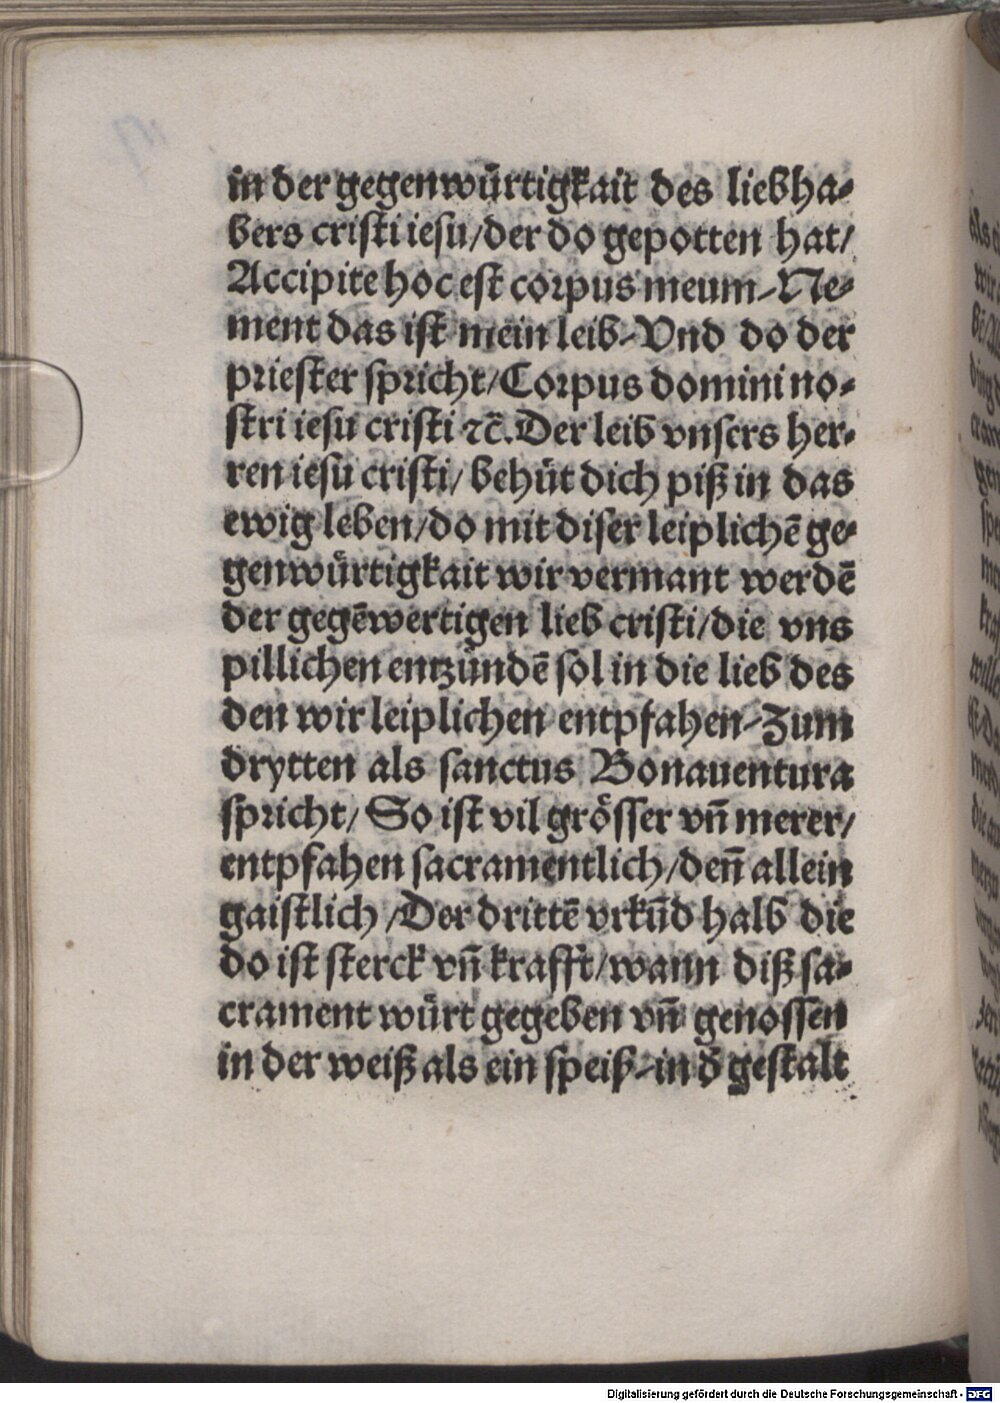 in der gegenwürtigkait des liebha⸗
bers cristi iesu/der do gepotten hat/
Accipite hoc est corpus meum⸗Ne⸗
ment das ist mein leib⸗Vnd do der
priester spricht/Corpus domini no⸗
stri iesu cristi ⁊c̃.Der leib vnsers her⸗
ren iesu cristi/behüt dich piß in das
ewig leben/do mit diser leiplichē ge⸗
genwürtigkait wir vermant werdē
der gegēwertigen lieb cristi/die vns
pillichen entzündē sol in die lieb des
den wir leiplichen entpfahen⸗Zum
drytten als sanctus Bonauentura
spricht/So ist vil grösser vñ merer/
entpfahen sacramentlich/deñ allein
gaistlich/Der drittē vrkūd halb die
do ist sterck vñ krafft/wann diß sa⸗
crament würt gegeben vñ genossen
in der weiß als ein speiß⸗in d̄ gestalt
Digitalisierung gefördert durch die Deutsche Forschungsgemeinschaft - DFG